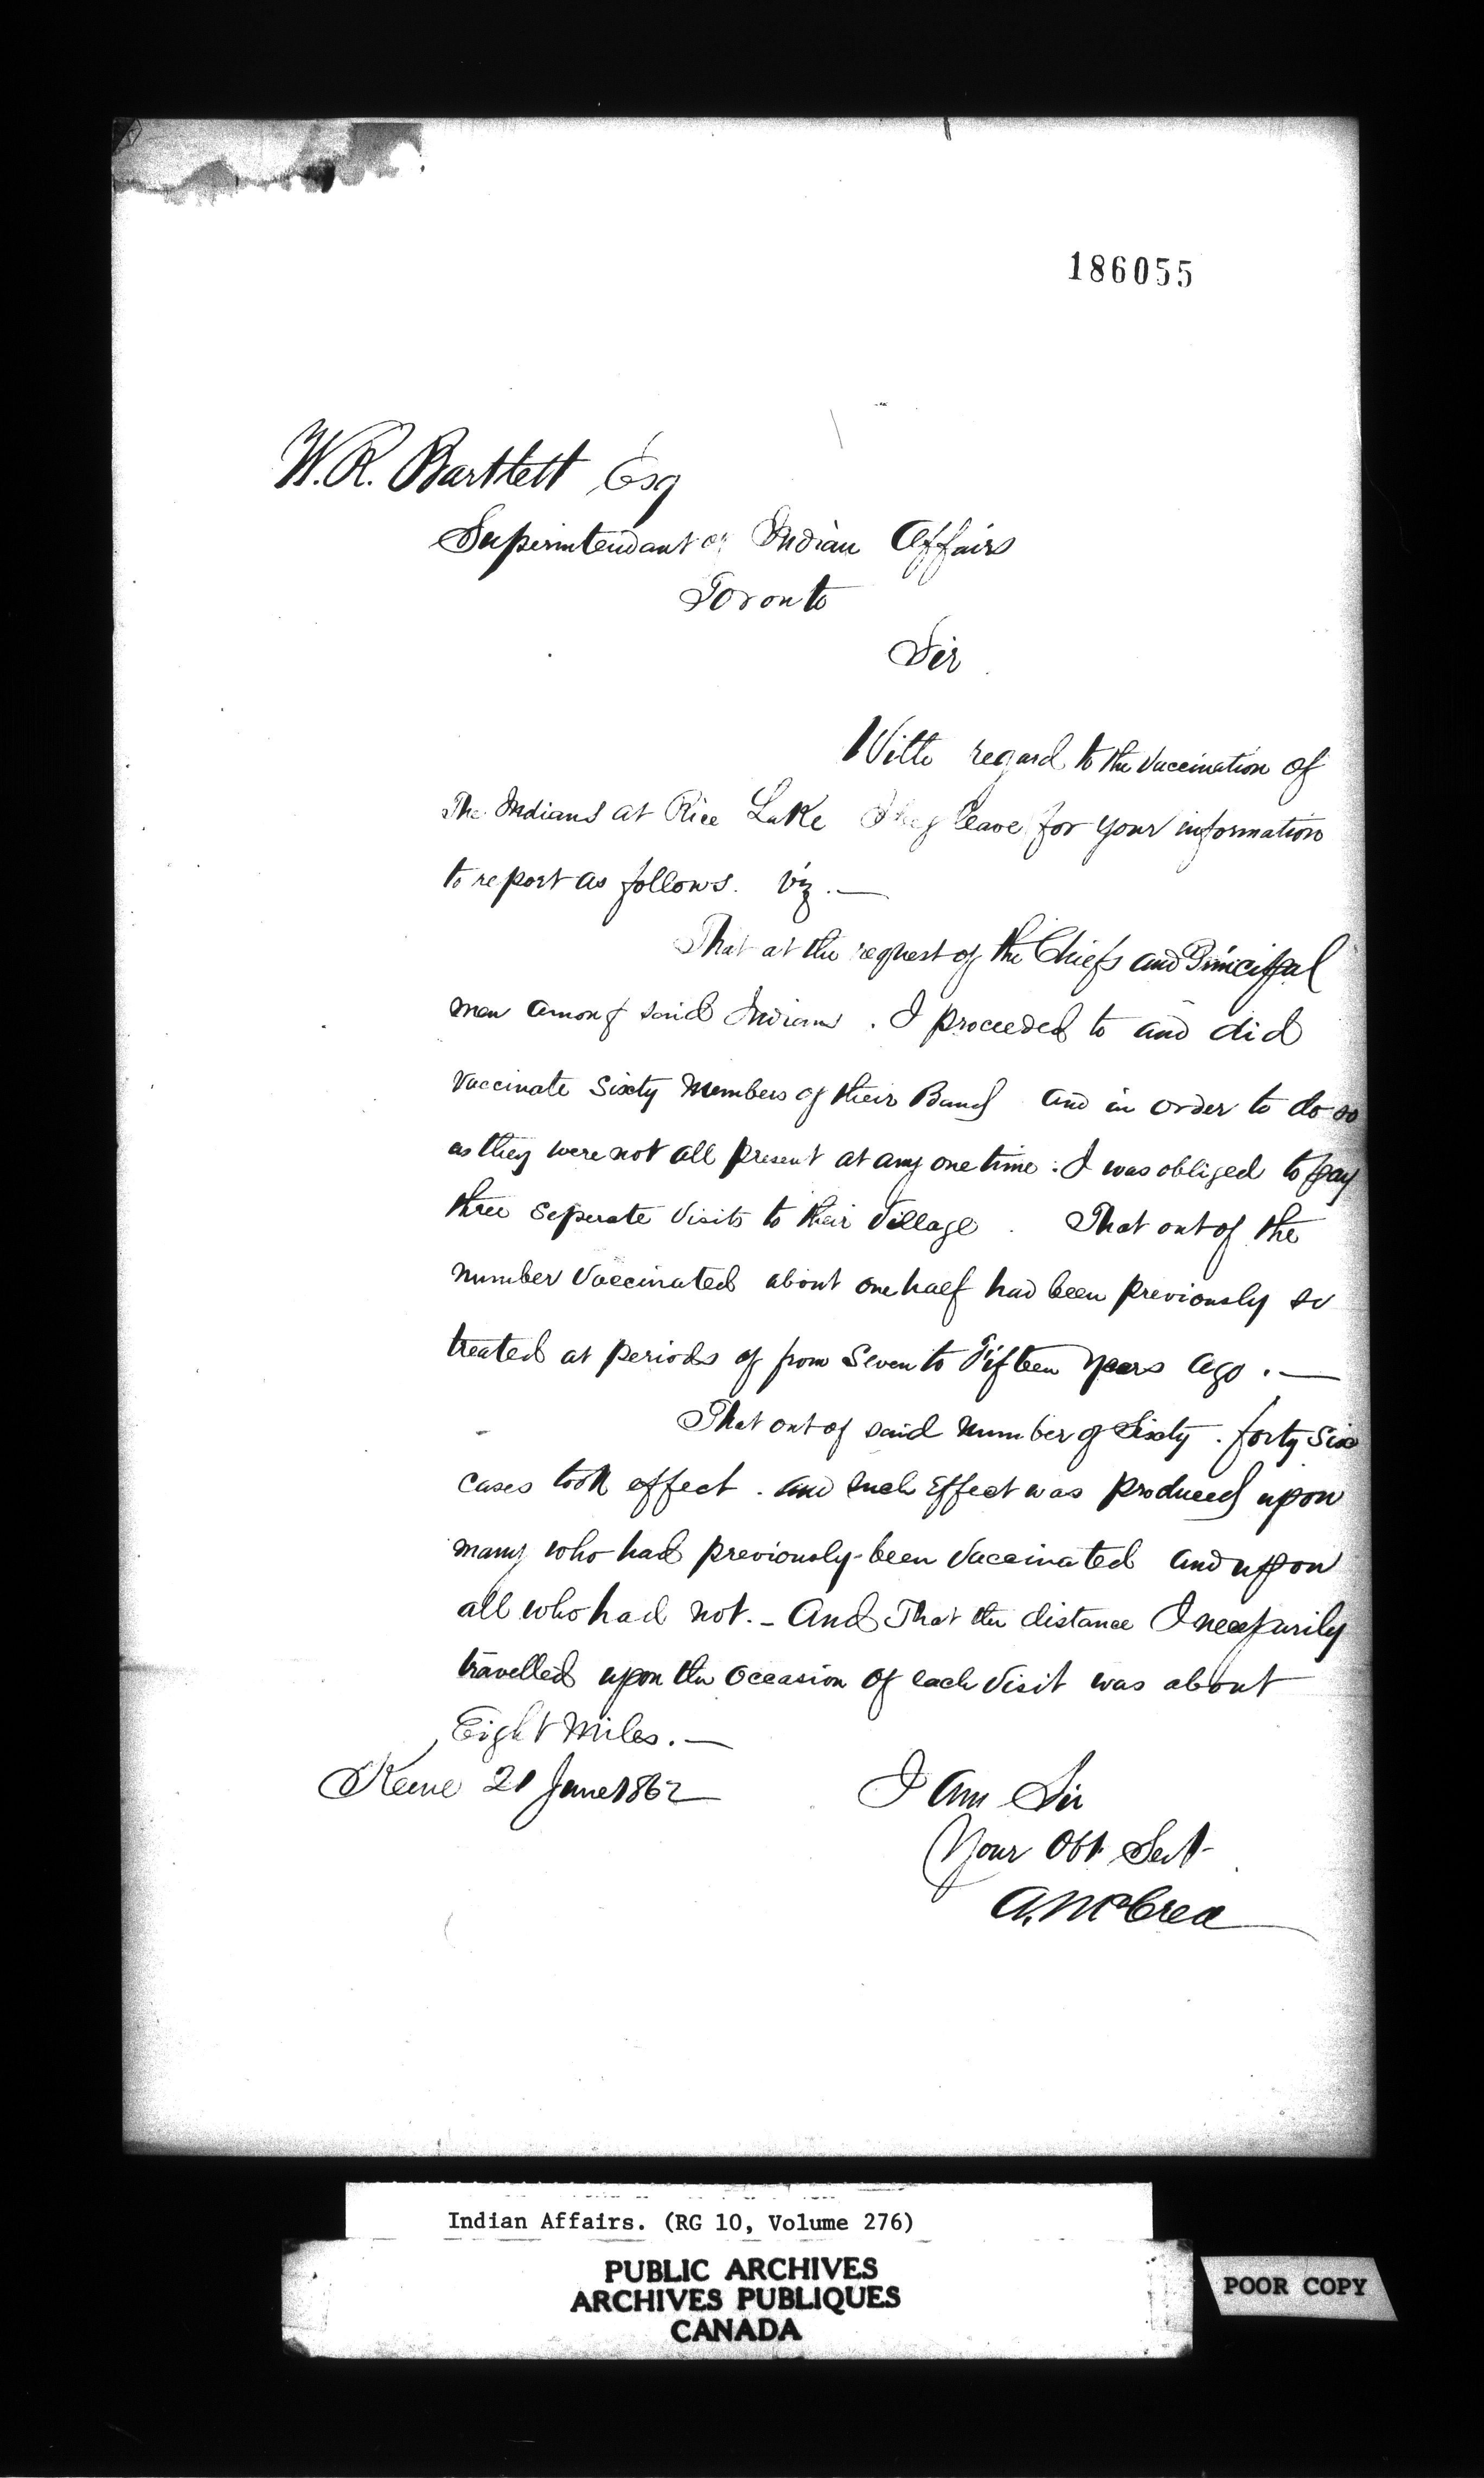 186055
W.R. Bartlett Esq
Superintendant of Indian Affairs
Toronto
Sir
With regard to the Vaccination of
The Indians at Rice Lake I beg leave for your information
to report as follows. viz. —
That at the request of the Chiefs and Principal
men among said Indians . I proceeded to and did
vaccinate Sixty Members of their Band and in order to do so
as they were not all present at any one time . I was obliged to pay
three Seperate Visits to their Village . That out of the
number Vaccinated about one half had been previously so
treated at periods of from Seven to Fifteen Years ago . —
That out of said number of Sixty . forty Six
cases took effect . and such Effect was produced upon
many who had previously been Vaccinated and upon
all who had not. – And That the distance I necessarily
travelled upon the occasion of each Visit was about
Eight Miles. —
Keene 21 June 1862
I Am Sir
Your Obt Sevt
A. McCrea
Indian Affairs. (RG 10, Volume 276)
PUBLIC ARCHIVES
ARCHIVES PUBLIQUES
CANADA
POOR COPY